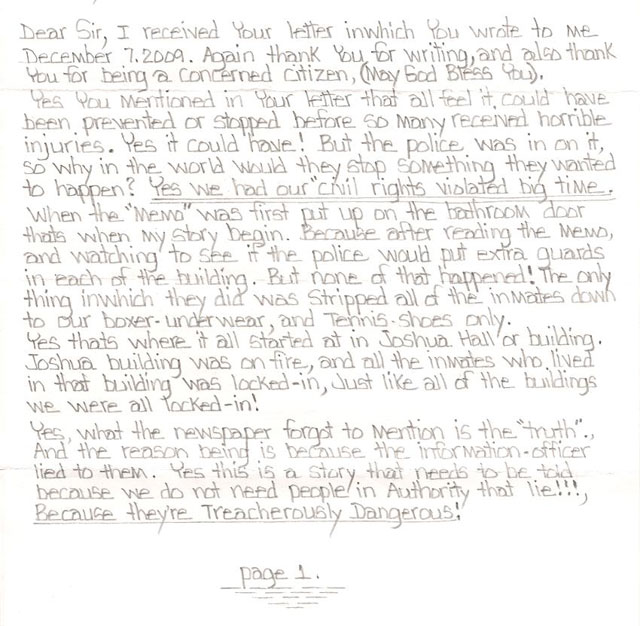 Dear Sir, I received Your letter inwhich You wrote to me
December 7.2009. Again thank You for writing, and also thank
You for being a concerned citizen, (May God Bless You).
Yes You Mentioned in Your letter that all feel it, could have
been prevented or stopped before so many received horrible
injuries. Yes it could have! But the police was in on it,
so why in the world would they stop something they wanted
to happen? Yes we had our "civil rights violated big time.
When the "Memo" was first put up on the bathroom door
thats when my story begin. Because after reading the Memo,
and watching to see if the police would put extra guards
in each of the building. But none of that happened! The only
thing inwhich they did was stripped all of the inmates down
to our boxer-underwear, and Tennis-shoes only.
Yes thats where it all started at in Joshua Hall or building.
Joshua building was on-fire, and all the inmates who lived
in that building was locked-in, Just like all of the buildings
we were all locked-in!
Yes, what the newspaper forgot to Mention is the "truth".,
And the reason being is because the information-officer
lied to them. Yes this is a story that needs to be told
because we do not need people in Authority that lie!!!,
Because they're Treacherously Dangerous!
page 1.